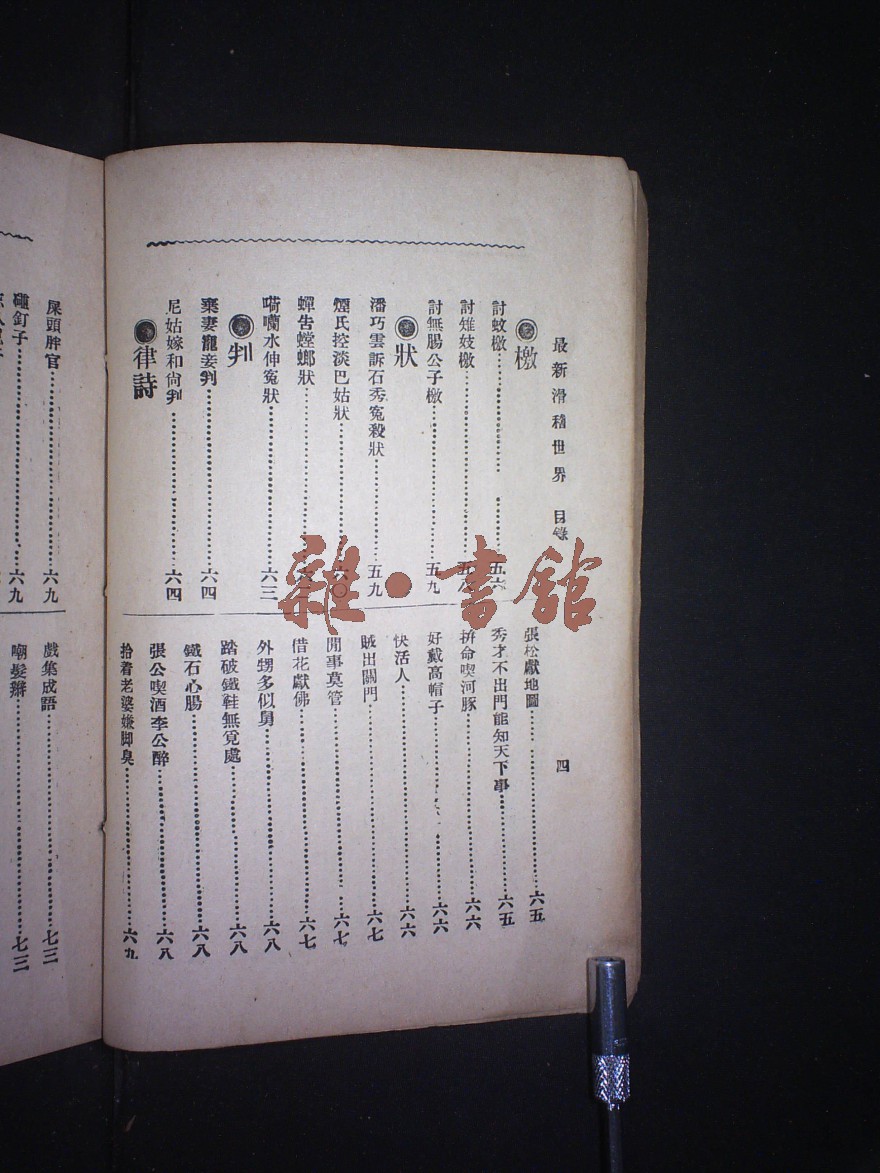 最新滑稽世界 目錄
四
檄
討蚊檄 五六
討雉妓檄
討無腸公子檄 五九
狀
潘巧雲訴石秀冤殺狀 五九
煙氏控淡巴姑狀 六〇
蟬吿螳螂狀
嗬囒水伸冤狀 六三
判
棄妻寵妾判 六四
尼姑嫁和尙判 六四
律詩
張松獻地圖 六五
秀才不出門能知天下事 六五
拚命喫河豚 六六
好戴高帽子 六六
快活人 六六
賊出關門 六七
閒事莫管 六七
借花獻佛 六七
外甥多似舅 六八
踏破鐵鞋無覓處 六八
鐵石心腸 六八
張公喫酒李公醉 六八
拾着老婆嫌脚臭 六九
屎頭胖官 六九
碰釘子 六九
戲集成語 七三
嘲髮辮 七三
雜·書館